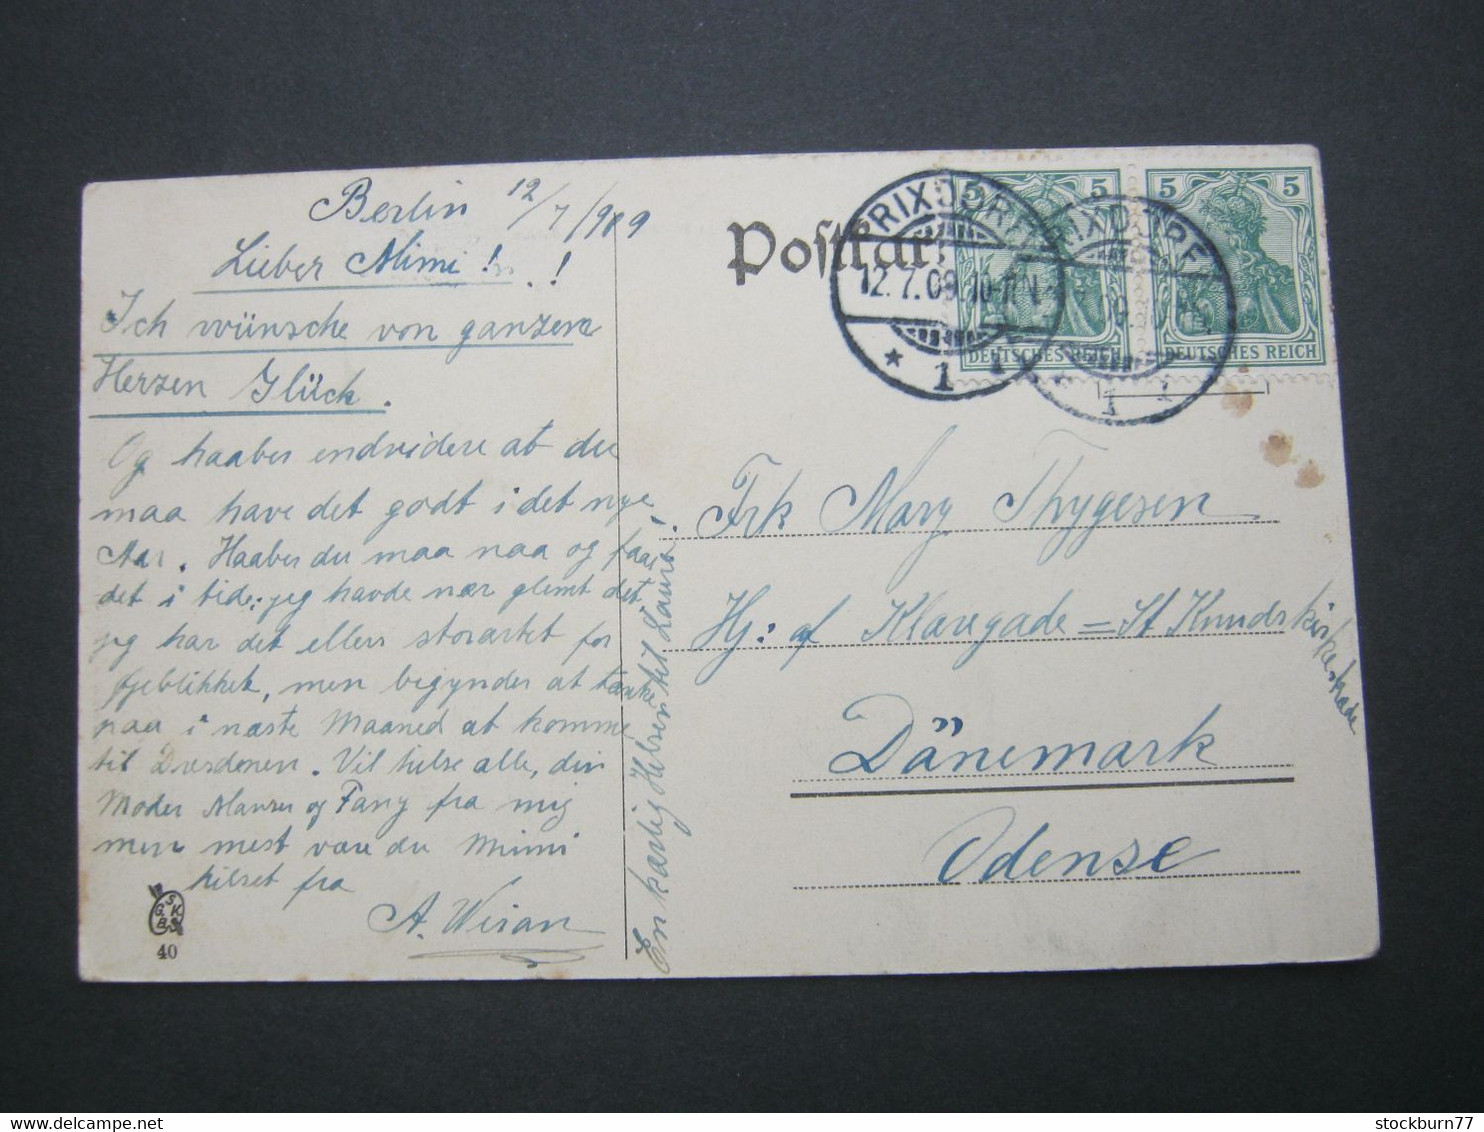 Berlin 12/7/909
Lieber Mimi! !
Ich wünsche von ganzem
Herzen Glück.
Og haaber endvidere at du
maa have det godt i det nye
Aar. Haaber du maa naa og faa
det i tide; jeg havde nær glemt det,
jeg har det ellers storartet for
Øjeblikket, men begynder at tænke
paa i næste Maaned at komme
til Dresden. Vil hilse alle, din
Moder og Fany fra mig
men mest være du Mimi
hilset fra
A. Wiran
En kærlig Hilsen til Laura!
G S K B
40
Postkar
RIXDORF
12.7.09. 10-11N
* 1 1
RIXDORF
09.
1 1
5 5
DEUTSCHES REICH
5 5
DEUTSCHES REICH
Frk Mary Thygesen
Hj: af Klaregade = St Knudskirkestræde
Dänemark
Odense
stockburn77